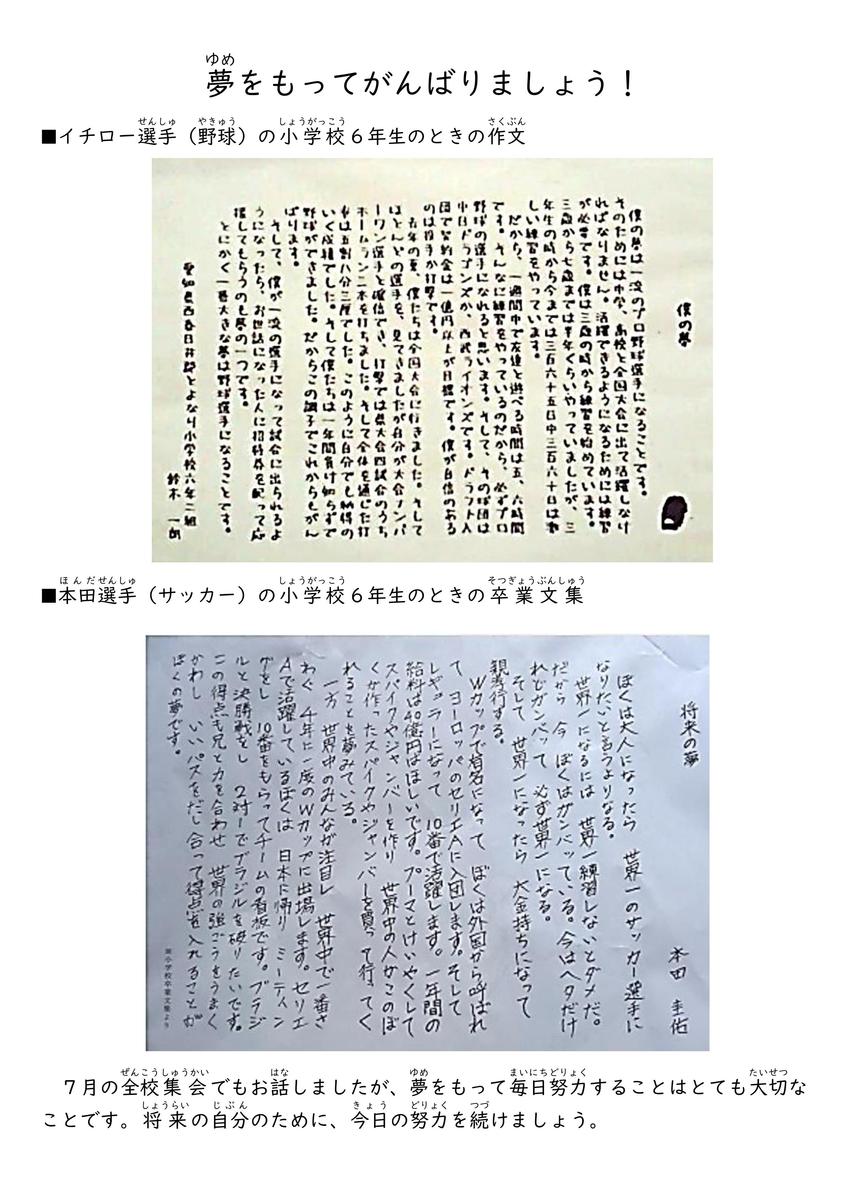 ゆめ
夢をもってがんばりましょう！
せんしゅ　やきゅう　しょうがっこう　さくぶん
■イチロー選手（野球）の小学校６年生のときの作文
僕の夢
僕の夢は一流のプロ野球選手になることです。
そのためには中学、高校と全国大会に出て活躍しなけ
ればなりません。活躍できるようになるためには練習
が必要です。僕は三歳の時から練習を始めています。
三歳から七歳までは半年くらいやっていましたが、三
年生の時から今までは三百六十五日中三百六十日は激
しい練習をやっています。
だから、一週間中で友達と遊べる時間は五、六時間
です。そんなに練習をやっているのだから、必ずプロ
野球の選手になれると思います。そして、その球団は
中日ドラゴンズか、西武ライオンズです。ドラフト入
団で契約金は一億円以上が目標です。僕が自信のある
のは投手か打撃です。
去年の夏、僕たちは全国大会に行きました。そして
ほとんどの選手を、見てきましたが自分が大会ナンバ
ーワン選手と確信でき、打撃では県大会四試合のうち
ホームラン二本を打ちました。そして全体を通じた打
率は五割八分三厘でした。このように自分でも納得の
いく成績でした。そして僕たちは一年間負け知らずで
野球ができました。だからこの調子でこれからもがん
ばります。
そして、僕が一流の選手になって試合に出られるよ
うになったら、お世話になった人に招待券を配って応
援してもらうのも夢の一つです。
とにかく一番大きな夢は野球選手になることです。
愛知県西春日井郡とよなり小学校六年二組
鈴木　一朗
ほんだせんしゅ　しょうがっこう　そつぎょうぶんしゅう
■本田選手（サッカー）の小学校６年生のときの卒業文集
将来の夢
本田　圭佑
ぼくは大人になったら　世界一のサッカー選手に
なりたいと言うよりなる。
世界一になるには　世界一練習しないとダメだ。
だから　今　ぼくはガンバッている。今はヘタだけ
れどガンバッて　必ず世界一になる。
そして　世界一になったら　大金持ちになって
親孝行する。
Wカップで有名になって　ぼくは外国から呼ばれ
て　ヨーロッパのセリエAに入団します。そして
レギュラーになって　10番で活躍します。一年間の
給料は40億円はほしいです。プーマとけいやくして
スパイクやジャンバーを作り　世界中の人がこのぼ
くが作ったスパイクやジャンバーを買って行ってく
れることを夢みている。
一方　世界中のみんなが注目し　世界中で一番さ
わぐ　4年に一度のWカップに出場します。セリエ
Aで活躍しているぼくは　日本に帰り　ミーティン
グをし　10番をもらってチームの看板です。ブラジ
ルと決勝戦をし　2対1でブラジルを破りたいです。
この得点も兄と力を合わせ　世界の強ごうをうまく
かわし　いいパスをだし合って得点を入れることが
ぼくの夢です。
ぜんこうしゅうかい　はな　ゆめ　まいにちどりょく　たいせつ
７月の全校集会でもお話しましたが、夢をもって毎日努力することはとても大切な
しょうらい　じぶん　きょう　どりょく　つづ
ことです。将来の自分のために、今日の努力を続けましょう。